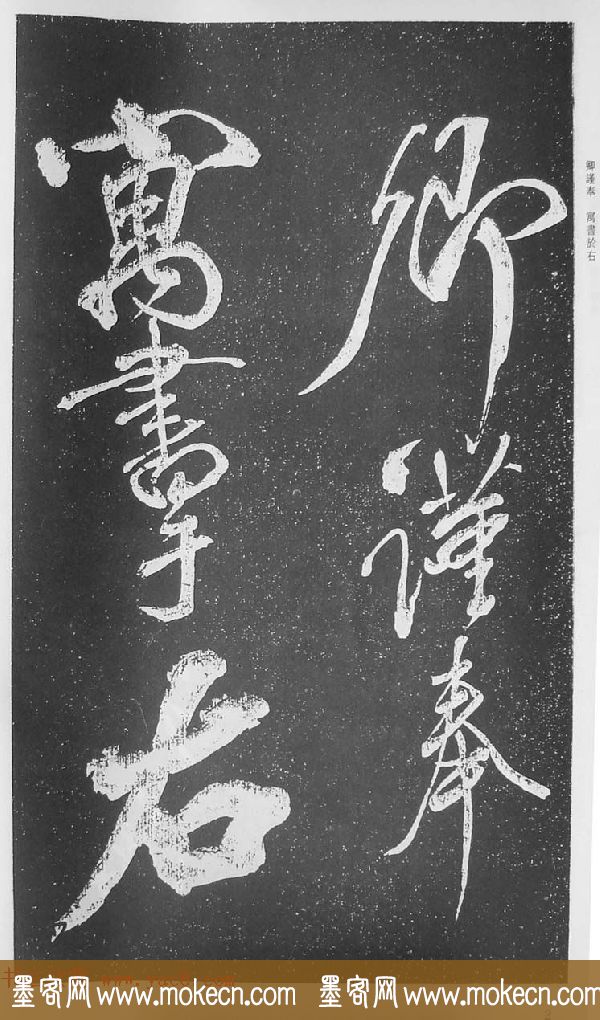 卿谨奉
寓書于右
卿謹奉 寓書於右
墨客网 www.mokecn.com 墨客网 www.mokecn.com